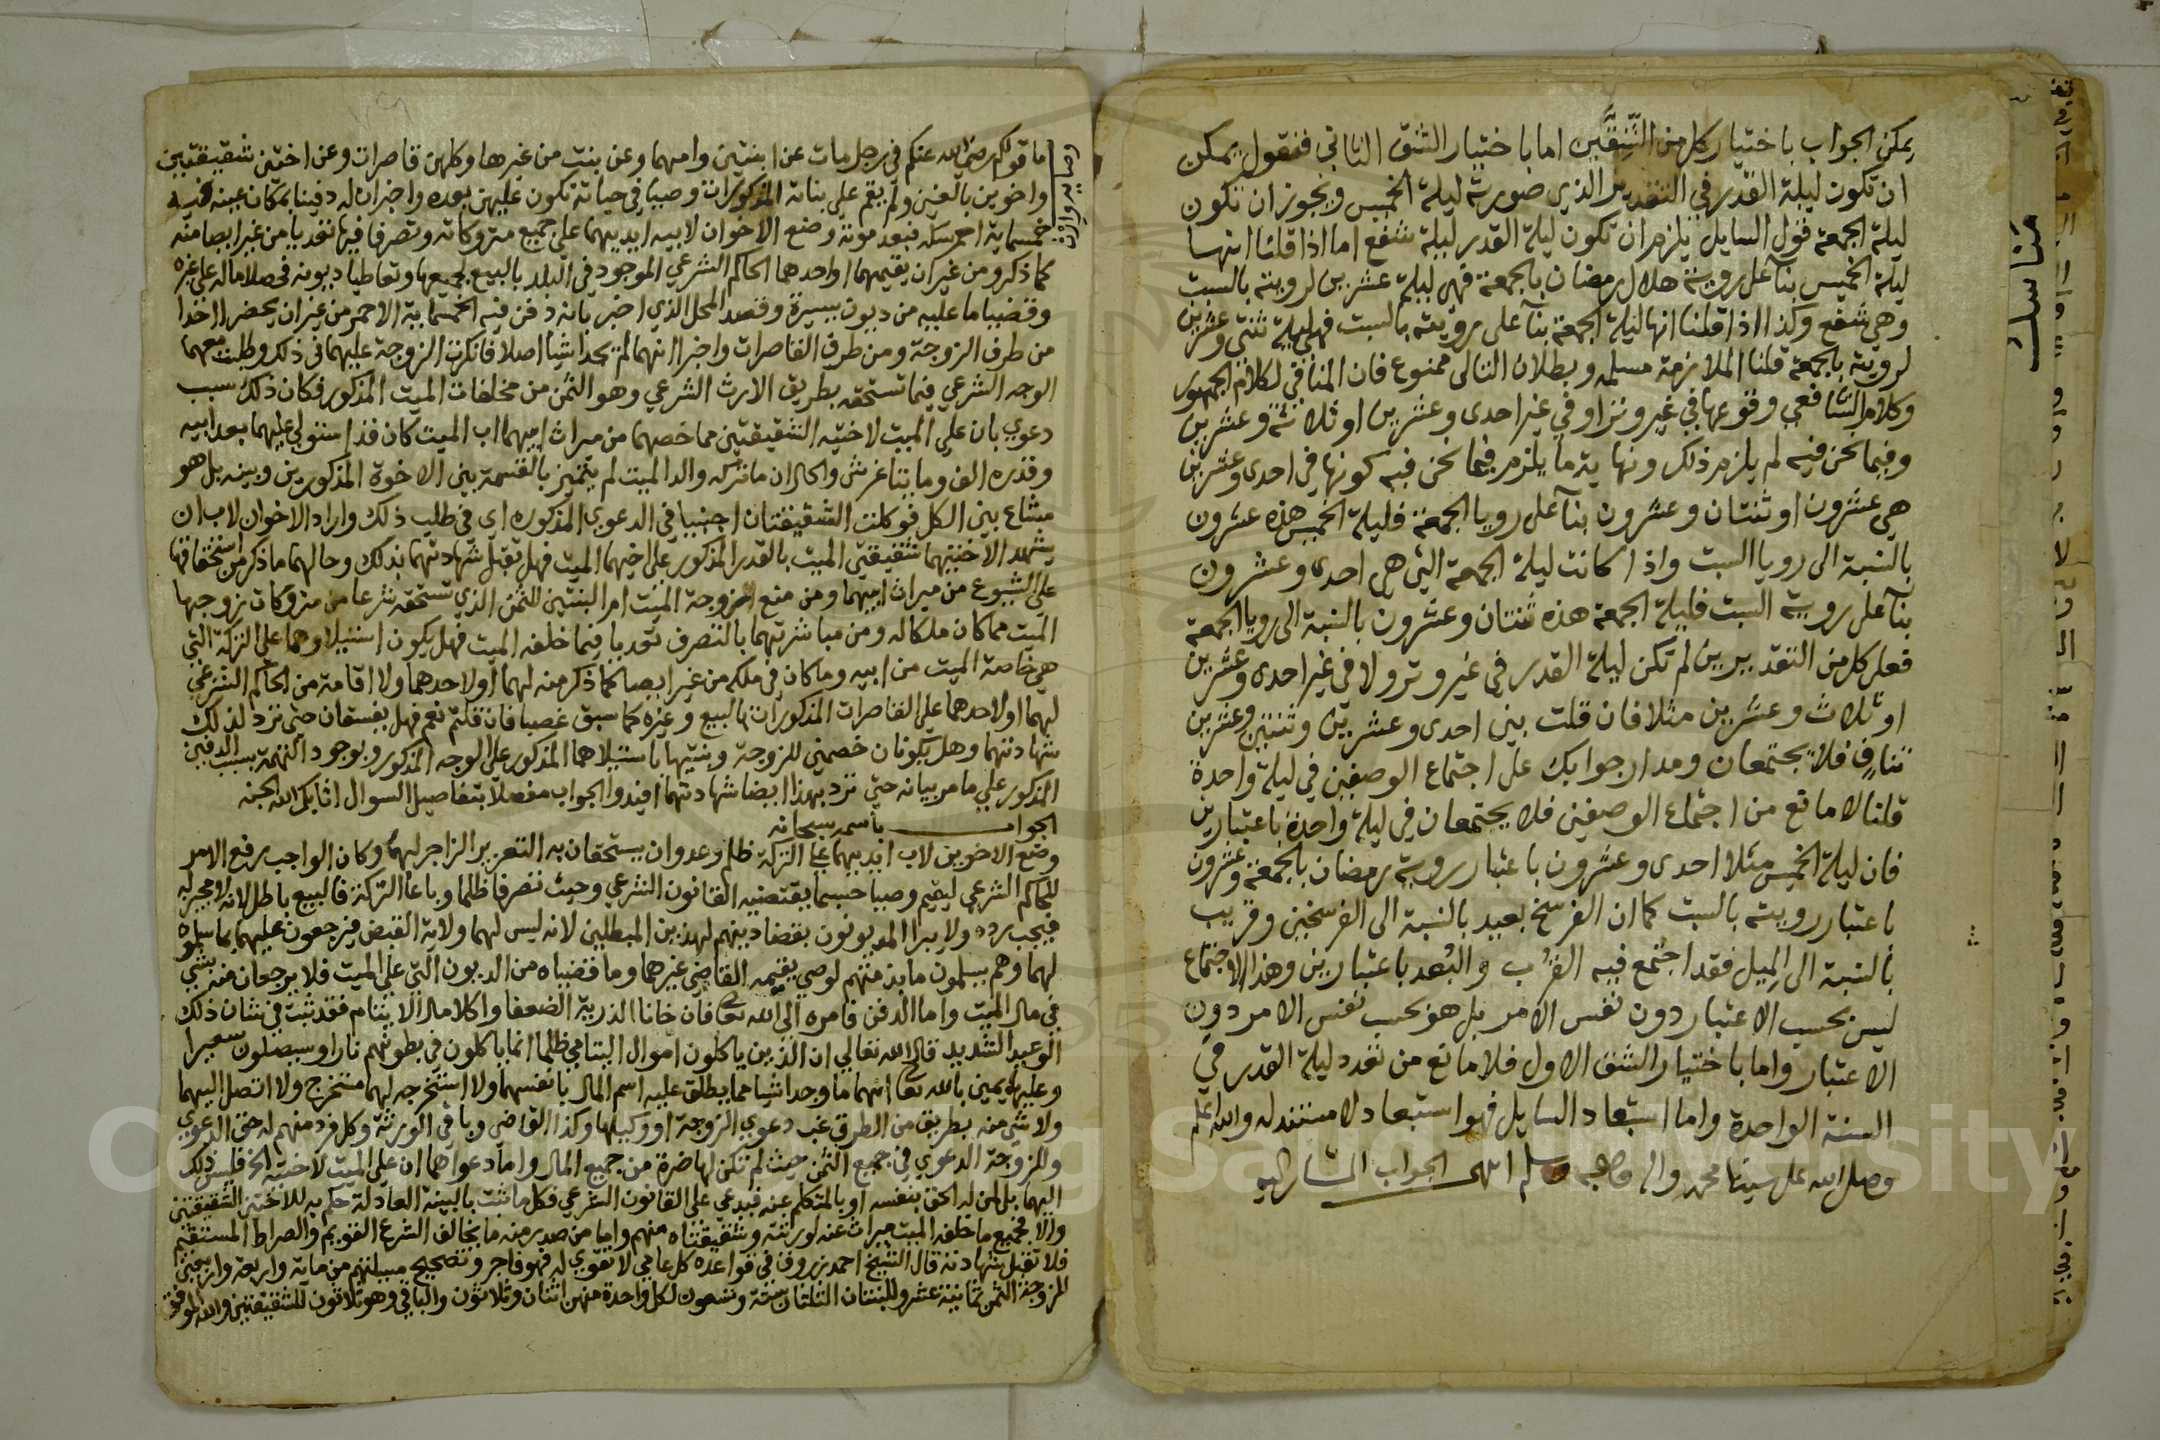 يمكن الجواب باختيار كل من الشقين اما باختيار الشق الثاني فنقول يمكن
ان تكون ليلة القدر في التقدير الذي صورته ليلة الخميس ويجوز ان تكون
ليلة الجمعة قول السايل يلزم ان تكون ليلة القدر ليلة شفع اما اذا قلنا انها
ليلة الخميس بنآ على روية هلال رمضان بالجمعة فهي ليلة عشرين لرويته بالسبت
وهي شفع وكذا اذا قلنا انها ليلة الجمعة بنآ على رؤيته بالسبت فهي ليلة ثنتي وعشرين
لرويته بالجمعة قلنا الملازمة مسلمة وبطلان التالي ممنوع فان المنافي لكلام الجمهور
وكلام الشافعي وقوعها في غير وتر او في غير احدى وعشرين او ثلاثة وعشرين
وفيما نحن فيه لم يلزم ذلك ونهاية ما يلزم فيما نحن فيه كونها في احدى وعشرين
هي عشرون او ثنتان وعشرون بنآ على رويا الجمعة فليلة الخميس هذه عشرون
بالنسبة الى رويا السبت واذا كانت ليلة الجمعة التي هي احدى وعشرون
بنآ على روية السبت فليلة الجمعة هذه ثنتان وعشرون بالنسبة الى رويا الجمعة
فعلى كل من التقديرين لم تكن ليلة القدر في غير وتر ولا في غير احدى وعشرين
او ثلاث وعشرين مثلا فان قلت بين احدى وعشرين وثنتين وعشرين
تنافٍ فلا يجتمعان ومدار جوابك على اجتماع الوصفين في ليلة واحدة
قلنا لا مانع من اجتماع الوصفين فلا يجتمعان في ليلة واحدة باعتبارين
فان ليلة الخميس مثلا احدى وعشرون باعتبار روية رمضان بالجمعة وعشرون
باعتبار رويته بالسبت كما ان الفرسخ بعيد بالنسبة الى الفرسخين وقريب
بالنسبة الى الميل فقد اجتمع فيه القرب والبُعد باعتبارين وهذا الاجتماع
ليس بحسب الاعتبار دون نفس الامر بل هو بحسب نفس الامر دون
الاعتبار واما باختيار الشق الاول فلا مانع من تعدد ليلة القدر في
السنة الواحدة واما استبعاد السايل فهو استبعاد لا مستند له والله اعلم
وصلى الله على سيدنا محمد واله وصحبه وسلم انتهى الجواب المشار اليه
مناسك
ما قولكم رضي الله عنكم في رجل مات عن ابنتين وامهما وعن بنت من غيرها وكلهن قاصرات وعن اختين شقيقتين
واخوين بالغين ولم يقم على بناته المذكورات وصيا في حياته تكون عليهن بعده واخبر ان له دفينا بمكان عينه فيه
خمسماية احمر سكه فبعد موته وضع الاخوان لابيه ايديهما على جميع متروكاته وتصرفا فيها تعديا من غير ايصا منه
كما ذكر ومن غير ان يقيمهما او احدهما الحاكم الشرعي الموجود في البلد بالبيع لجميعها وتعاطيا ديونه فحصلا ماله على غيره
وقضيا ما عليه من ديون يسيرة وقصد المحل الذي اخبر بانه دفن فيه الخمسماية الاحمر من غير ان يحضرا احدا
من طرف الزوجة ومن طرف القاصرات واخبرا انهما لم يجدا شيا اصلا فانكرت الزوجة عليهما في ذلك وطلبت معهما
الوجه الشرعي فيما تستحقه بطريق الارث الشرعي وهو الثمن من مخلفات الميت المذكور فكان ذلك سبب
دعوي بان على الميت لاختيه الشقيقتين مما خصهما من ميراث ابيهما اب الميت كان قد استولي عليهما بعد ابيه
وقدره الف ومايتا غرش والحال ان ما تركه والد الميت لم يتميز بالقسمة بين الاخوة المذكورين وبينه بل هو
مشاع بين الكل فوكلت الشقيقتان اجنبيا في الدعوي المذكوره اي في طلب ذلك واراد الاخوان لاب ان
يشهدا لاختيهما شقيقتي الميت بالقدر المذكور على اخيهما الميت فهل تقبل شهادتهما بذلك وحالهما ما ذكر من استحقاقها
على الشيوع من ميراث ابيهما ومن منع الزوجة الميت ام البنتين للثمن الذي تستحقه شرعا من متروكات زوجها
الميت مما كان ملكا له ومن مباشرتهما بالتصرف تعديا فيما خلفه الميت فهل يكون استيلاوهما على التركة التي
هي خاصة الميت من ابيه وما كان في ملكه من غير ايصا كما ذكر منه لهما او لاحدهما ولا اقامة من الحاكم الشرعي
لهما او لاحدهما على القاصرات المذكورات بالبيع وغيره كما سبق غصبا فان قلتم نعم فهل يفسقان حتى ترد لذلك
شهادتهما وهل يكونان خصمين للزوجة وبنتيها باستيلاهما المذكور على الوجه المذكور وبوجود التهمة بسبب الدفين
المذكور على ما مر بيانه حتى ترد بهذا ايضا شهادتهما افيدوا الجواب مفصلا بتفاصيل السوال اثابكم الله الجنه
الجواب باسمه سبحانه
وضع الاخوين لاب ايديهما على التركة ظلم وعدوان يستحقان به التعزير الزاجر لهما وكان الواجب رفع الامر
للحاكم الشرعي ليقيم وصيا حسبما يقتضيه القانون الشرعي وحيث تصرفا ظلما وباعا التركة فالبيع باطل
فيجب رده ولا يبرا المديونون بقضا دينهم لهذين المبطلين لانه ليس لهما ولاية القبض فيرجعون عليهما بما سلموه
لهما وهم يسلمون ما بذمتهم لوصي يقيمه القاضي غيرهما وما قضياه من الديون التي على الميت فلا يرجعان منه بشي
في مال الميت واما الدفن فامره الى الله تعالى فان خانا الذرية الضعفا واكلا مال الايتام فقد ثبت في شان ذلك
الوعيد الشديد قال الله تعالي ان الذين ياكلون اموال اليتامي ظلما انما ياكلون في بطونهم نارا وسيصلون سعيرا
وعليهما يمين بالله تعالى انهما ما وجدا شيا مما يطلق عليه اسم المال بانفسهما ولا استخرجه لهما مستخرج ولا اتصل اليهما
ولا شي منه بطريق من الطرق غب دعوي الزوجة او وكيلها وكذا القاضي وباقي الورثة وكل فرد منهم له حق الدعوي
وللزوجة الدعوي في جميع الثمن حيث لم تكن لها ضرة من جميع المال واما دعواهما ان على الميت لاختيه الخ فليس ذلك
اليهما بل لمن له الحق بنفسه او بالمتكلم عنه فيدعي على القانون الشرعي فكل ما ثبت بالبينة العادلة حكم به للاختين الشقيقتين
والا فجميع ما خلفه الميت ميراث عنه لورثته وشقيقتاه منهم واما من صدر منه ما يخالف الشرع القويم والصراط المستقيم
فلا تقبل شهادته قال الشيخ احمد زروق في قواعده كل عامي لا تقوي له فهو فاجر وتصحيح مسئلتهم من ماية واربعة واربعين
للزوجة الثمن ثمانية عشر وللبنتان الثلثان ستة وتسعون لكل واحدة منهن اثنان وثلاثون والباقي وهو ثلاثون للشقيقتين والله الموفق